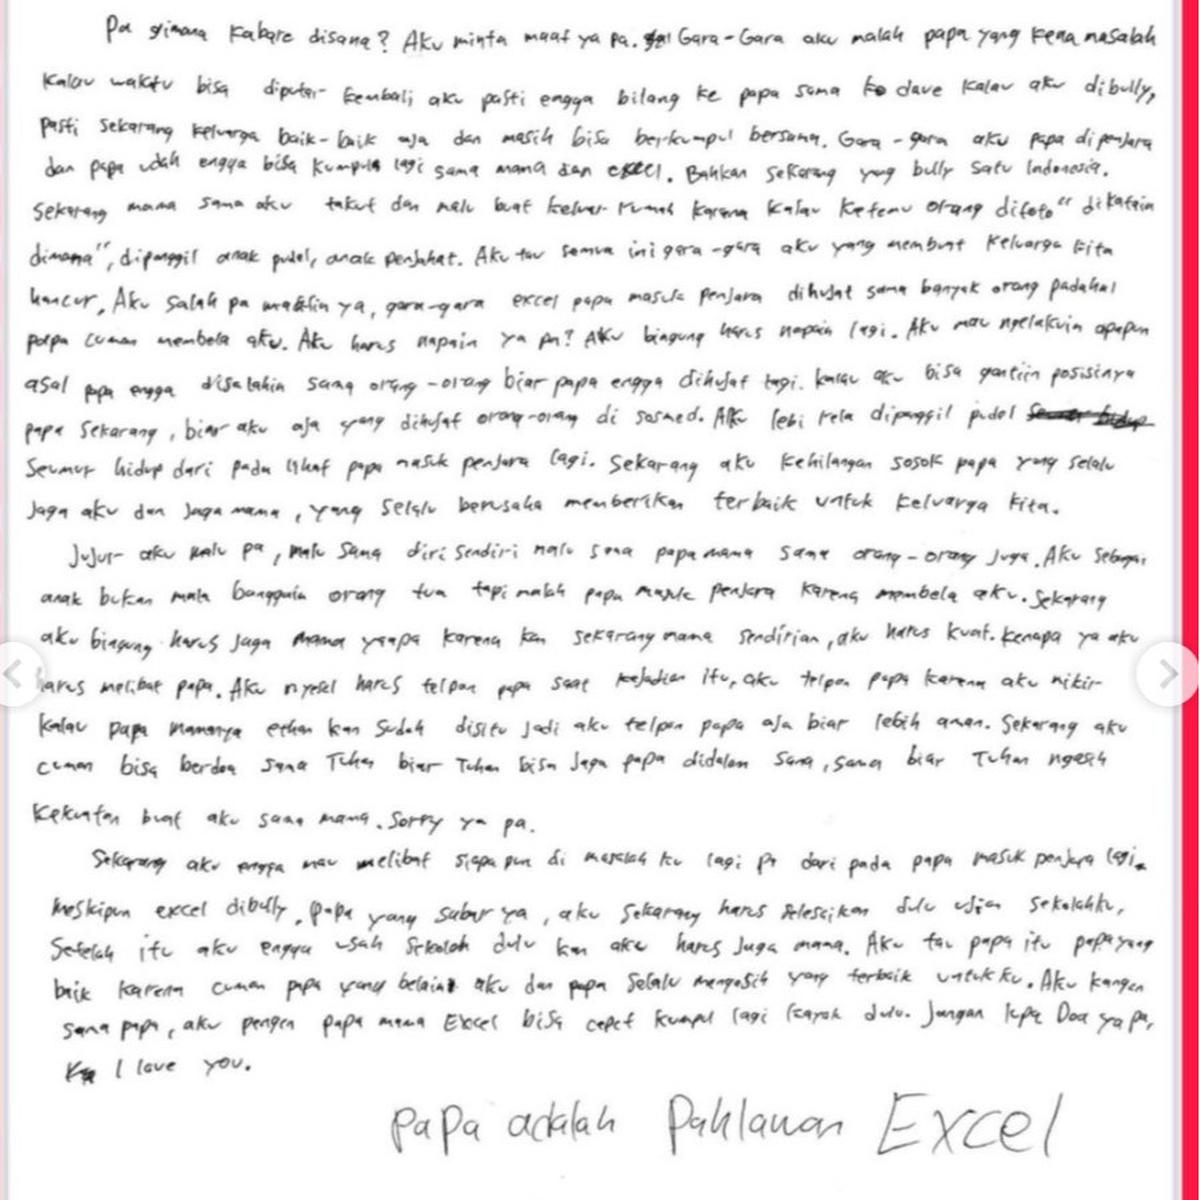 Pa gimana kabare disana? Aku minta maaf ya pa. Gara-Gara aku malah papa yang kena masalah
kalau waktu bisa diputar kembali aku pasti engga bilang ke papa sama ko dave kalau aku dibully,
pasti sekarang keluarga baik-baik aja dan masih bisa berkumpul bersama. Gara-gara aku papa dipenjara
dan papa udah engga bisa kumpul lagi sama mama dan excel. Bahkan sekarang yang bully satu Indonesia.
Sekarang mama sama aku takut dan malu buat keluar rumah karena kalau ketemu orang difoto" dikatain
dimana", dipanggil anak pudel, anak penjahat. Aku tau semua ini gara-gara aku yang membuat keluarga kita
hancur. Aku salah pa maafin ya, gara-gara excel papa masuk penjara dihujat sama banyak orang padahal
papa cuman membela aku. Aku harus napain ya pa? Aku bingung harus napain lagi. Aku mau ngelakuin apapun
asal papa engga disalahin sama orang-orang biar papa engga dihujat lagi. kalau aku bisa gantiin posisinya
papa sekarang, biar aku aja yang dihujat orang-orang di sosmed. Aku lebi rela dipanggil pudel
Seumur hidup dari pada lihat papa masuk penjara lagi. Sekarang aku kehilangan sosok papa yang selalu
jaga aku dan jaga mama, yang selalu berusaha memberikan terbaik untuk keluarga kita.
Jujur aku malu pa, malu sama diri sendiri malu sama papa mama sama orang-orang juga. Aku sebagai
anak bukan mala banggain orang tua tapi malah papa masuk penjara karena membela aku. Sekarang
aku bingung harus jaga mama yaapa karena kan sekarang mama sendirian, aku harus kuat. kenapa ya aku
harus melibat papa. Aku nyesel harus telpon papa saat kejadian itu, aku telpon papa karena aku mikir
kalau papa mamanya ethan kan sudah disitu jadi aku telpon papa aja biar lebih aman. Sekarang aku
cuman bisa berdoa sama Tuhan biar Tuhan bisa jaga papa didalam sana, sama biar Tuhan ngasih
kekuatan buat aku sama mama. Sorry ya pa.
Sekarang aku engga mau melibat siapa pun di masalah ku lagi pa dari pada papa masuk penjara lagi.
Meskipun excel dibully. papa yang sabar ya, aku sekarang harus selesaikan dulu ujian sekolahku,
Setelah itu aku engga usah sekolah dulu kan aku harus Jaga mama. Aku tau papa itu papa yang
baik karena cuman papa yang belain aku dan papa selalu mengasih yang terbaik untukku. Aku kangen
sama papa, aku pengen papa mama Excel bisa cepet kumpul lagi kayak dulu. Jangan lupa Doa ya pa,
I love you.
papa adalah Pahlawan Excel